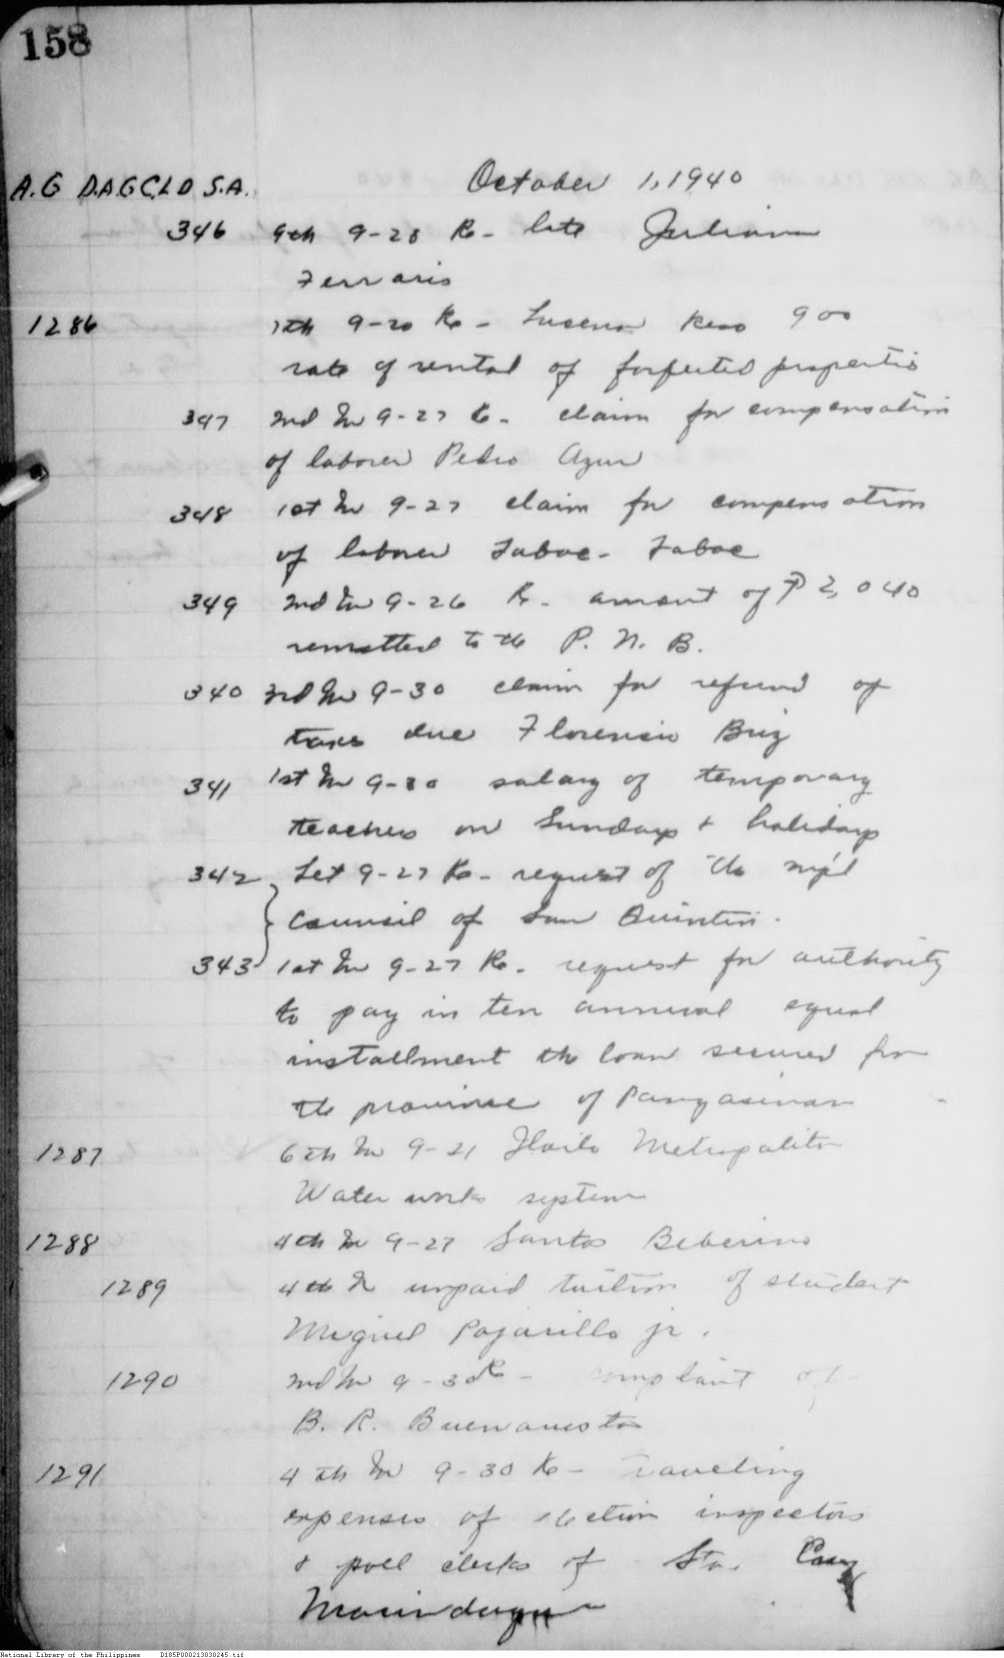 158
A.G D.A.G C.L.D S.A.
October 1, 1940
346 9th 9-28 Re- late Juliana
Ferraris
1286 7th 9-20 Re- Lucena Reso 900
rate of rental of forfeited properties
347 2nd In 9-27 Re- claim for compensation
of laborer Pedro
348 1st In 9-27 claim for compensation
of laborer
349 2nd In 9-26 Re- amount of ₱2,040
remitted to the P. N. B.
340 3rd In 9-30 claim for refund of
taxes due Florencio Briz
341 1st In 9-30 salary of temporary
teachers on Sundays & holidays
342 Let 9-27 Re- request of the mp'l
Council of San Quintin.
343 1st In 9-27 Re- request for authority
to pay in ten annual equal
installment the loan secured from
the province of Pangasinan
1287 6th In 9-21 Iloilo Metropolitan
Water works system
1288 4th In 9-27 Santos
1289 4th In unpaid tuition of student
Miguel Pajarillo jr.
1290 2nd In 9-30 Re- complaint of
B. R.
1291 4th In 9-30 Re- Traveling
expenses of election inspectors
& poll clerks of Sta. Cruz
Marinduque
National Library of the Philippines D185P000213030245.tif